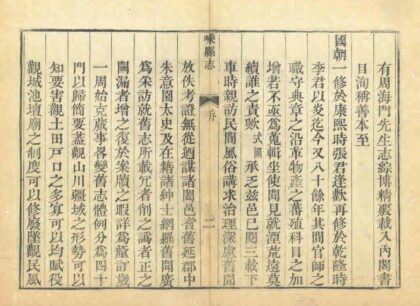 有周海門先生志綜博精覈載入內閣書
目洵稱善本至
國朝一修於康熙時張君逢歡再修於乾隆時
李君以炎迄今又八十餘年其間官師之
職守典章之沿革物產之蕃殖科目之加
增若不亟為蒐輯坐使聞見就湮荒遠莫
續誰之責歟式圃承乏茲邑已閱三載下
車時親訪民間風俗講求治理深慮舊聞
嵊縣志
序
二
放佚考證無從迺謀諸闔邑耆舊延郡中
朱意園太史及在籍諸紳士網羅舊聞廣
為采訪就舊志所載冗者削之譌者正之
闕漏者增之復於案牘之暇詳為釐訂歲
一周始克蕆事各變舊志體例分為四十
門以歸簡要蓋觀山川疆域之形勢可以
知要害觀土田戶口之多寡可以均賦役
觀城池壇廟之制度可以修廢墜觀民風